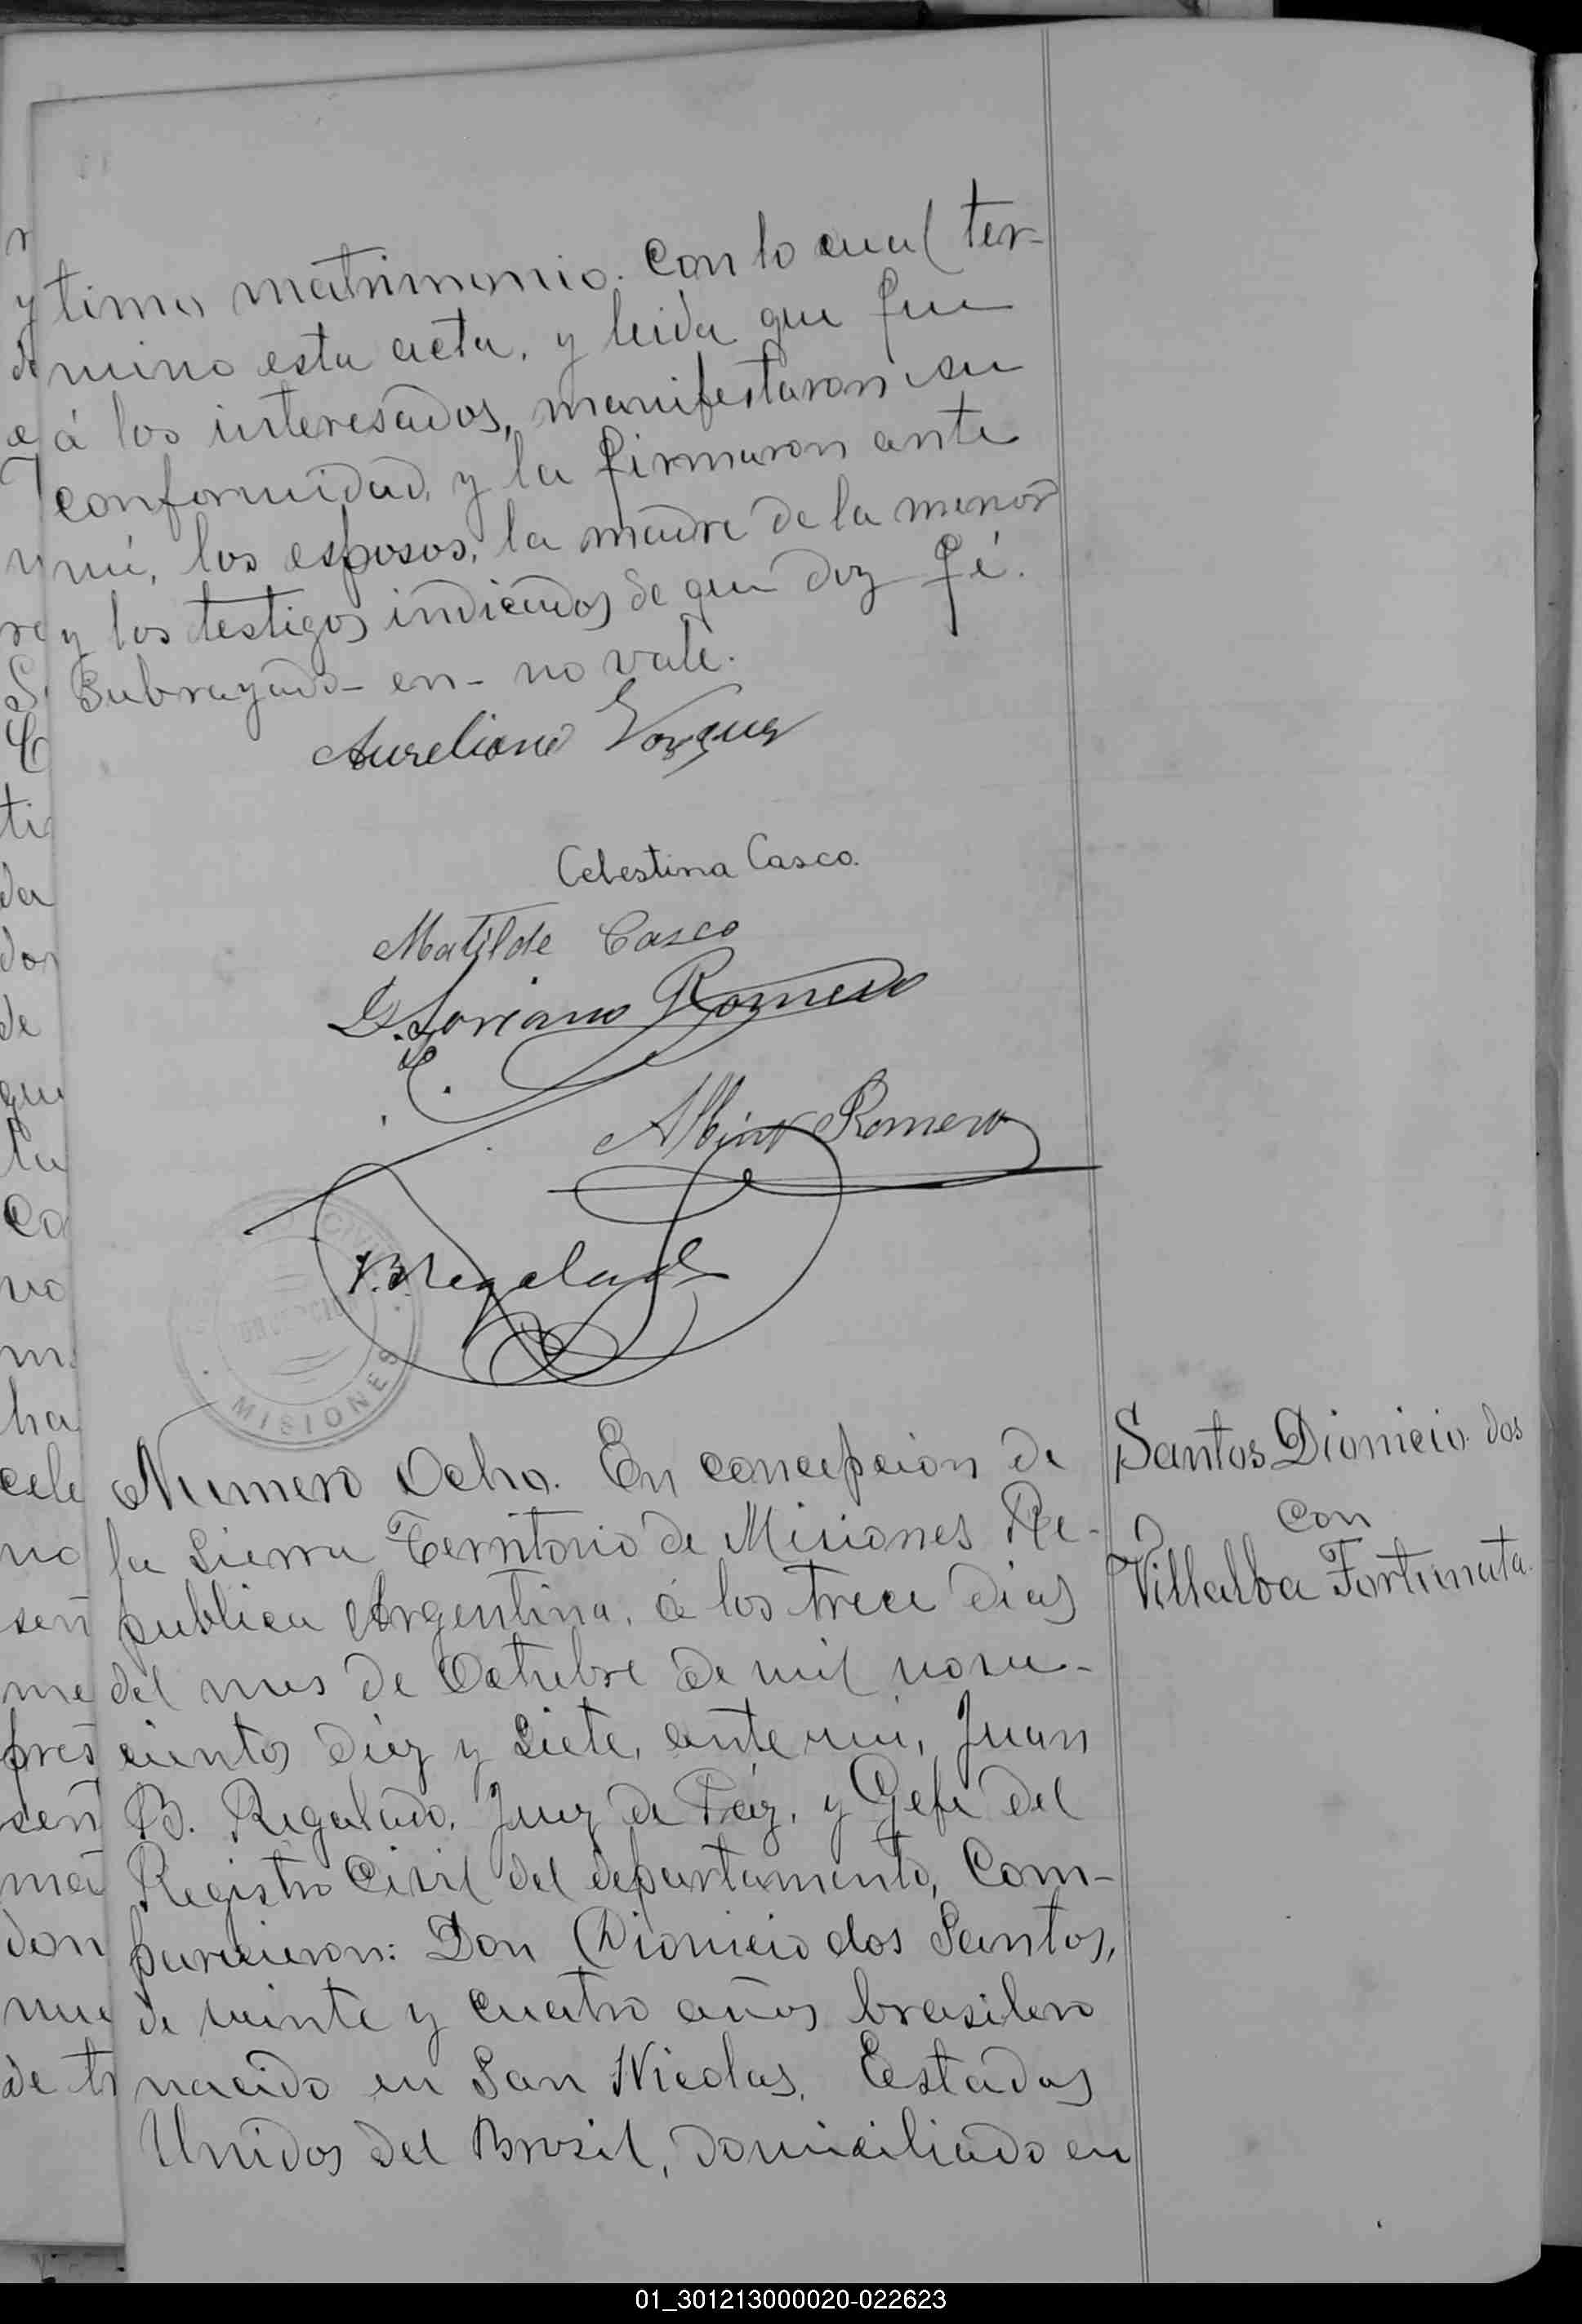 timo matrimonio. Con lo cual ter-
mino esta acta, y leida que fue
á los interesados, manifestaron su
conformidad, y la firmaron ante
mi, los esposos, la madre de la menor
y los testigos indicados de que doy fé.
Subrayado - en - no vale.
Aureliano Vasquez
Celestina Casco.
Matilde Casco
Soriano Romero
Albino Romero
J. B. Regalado
MISIONES
Numero Ocho. En concepcion de
la Sierra Territorio de Misiones Re-
publica Argentina, á los trece dias
del mes de Octubre de mil nove-
cientos diez y Siete, ante mi, Juan
B. Regalado, Juez de Páz, y Gefe del
Registro Civil del departamento, Com-
parecieron: Don Dionicio dos Santos,
de veinte y cuatro años brasilero
nacido en San Nicolas, Estados
Unidos del Brasil, domiciliado en
Santos Dionicio dos
Con
Villalba Fortunata.
01_301213000020-022623